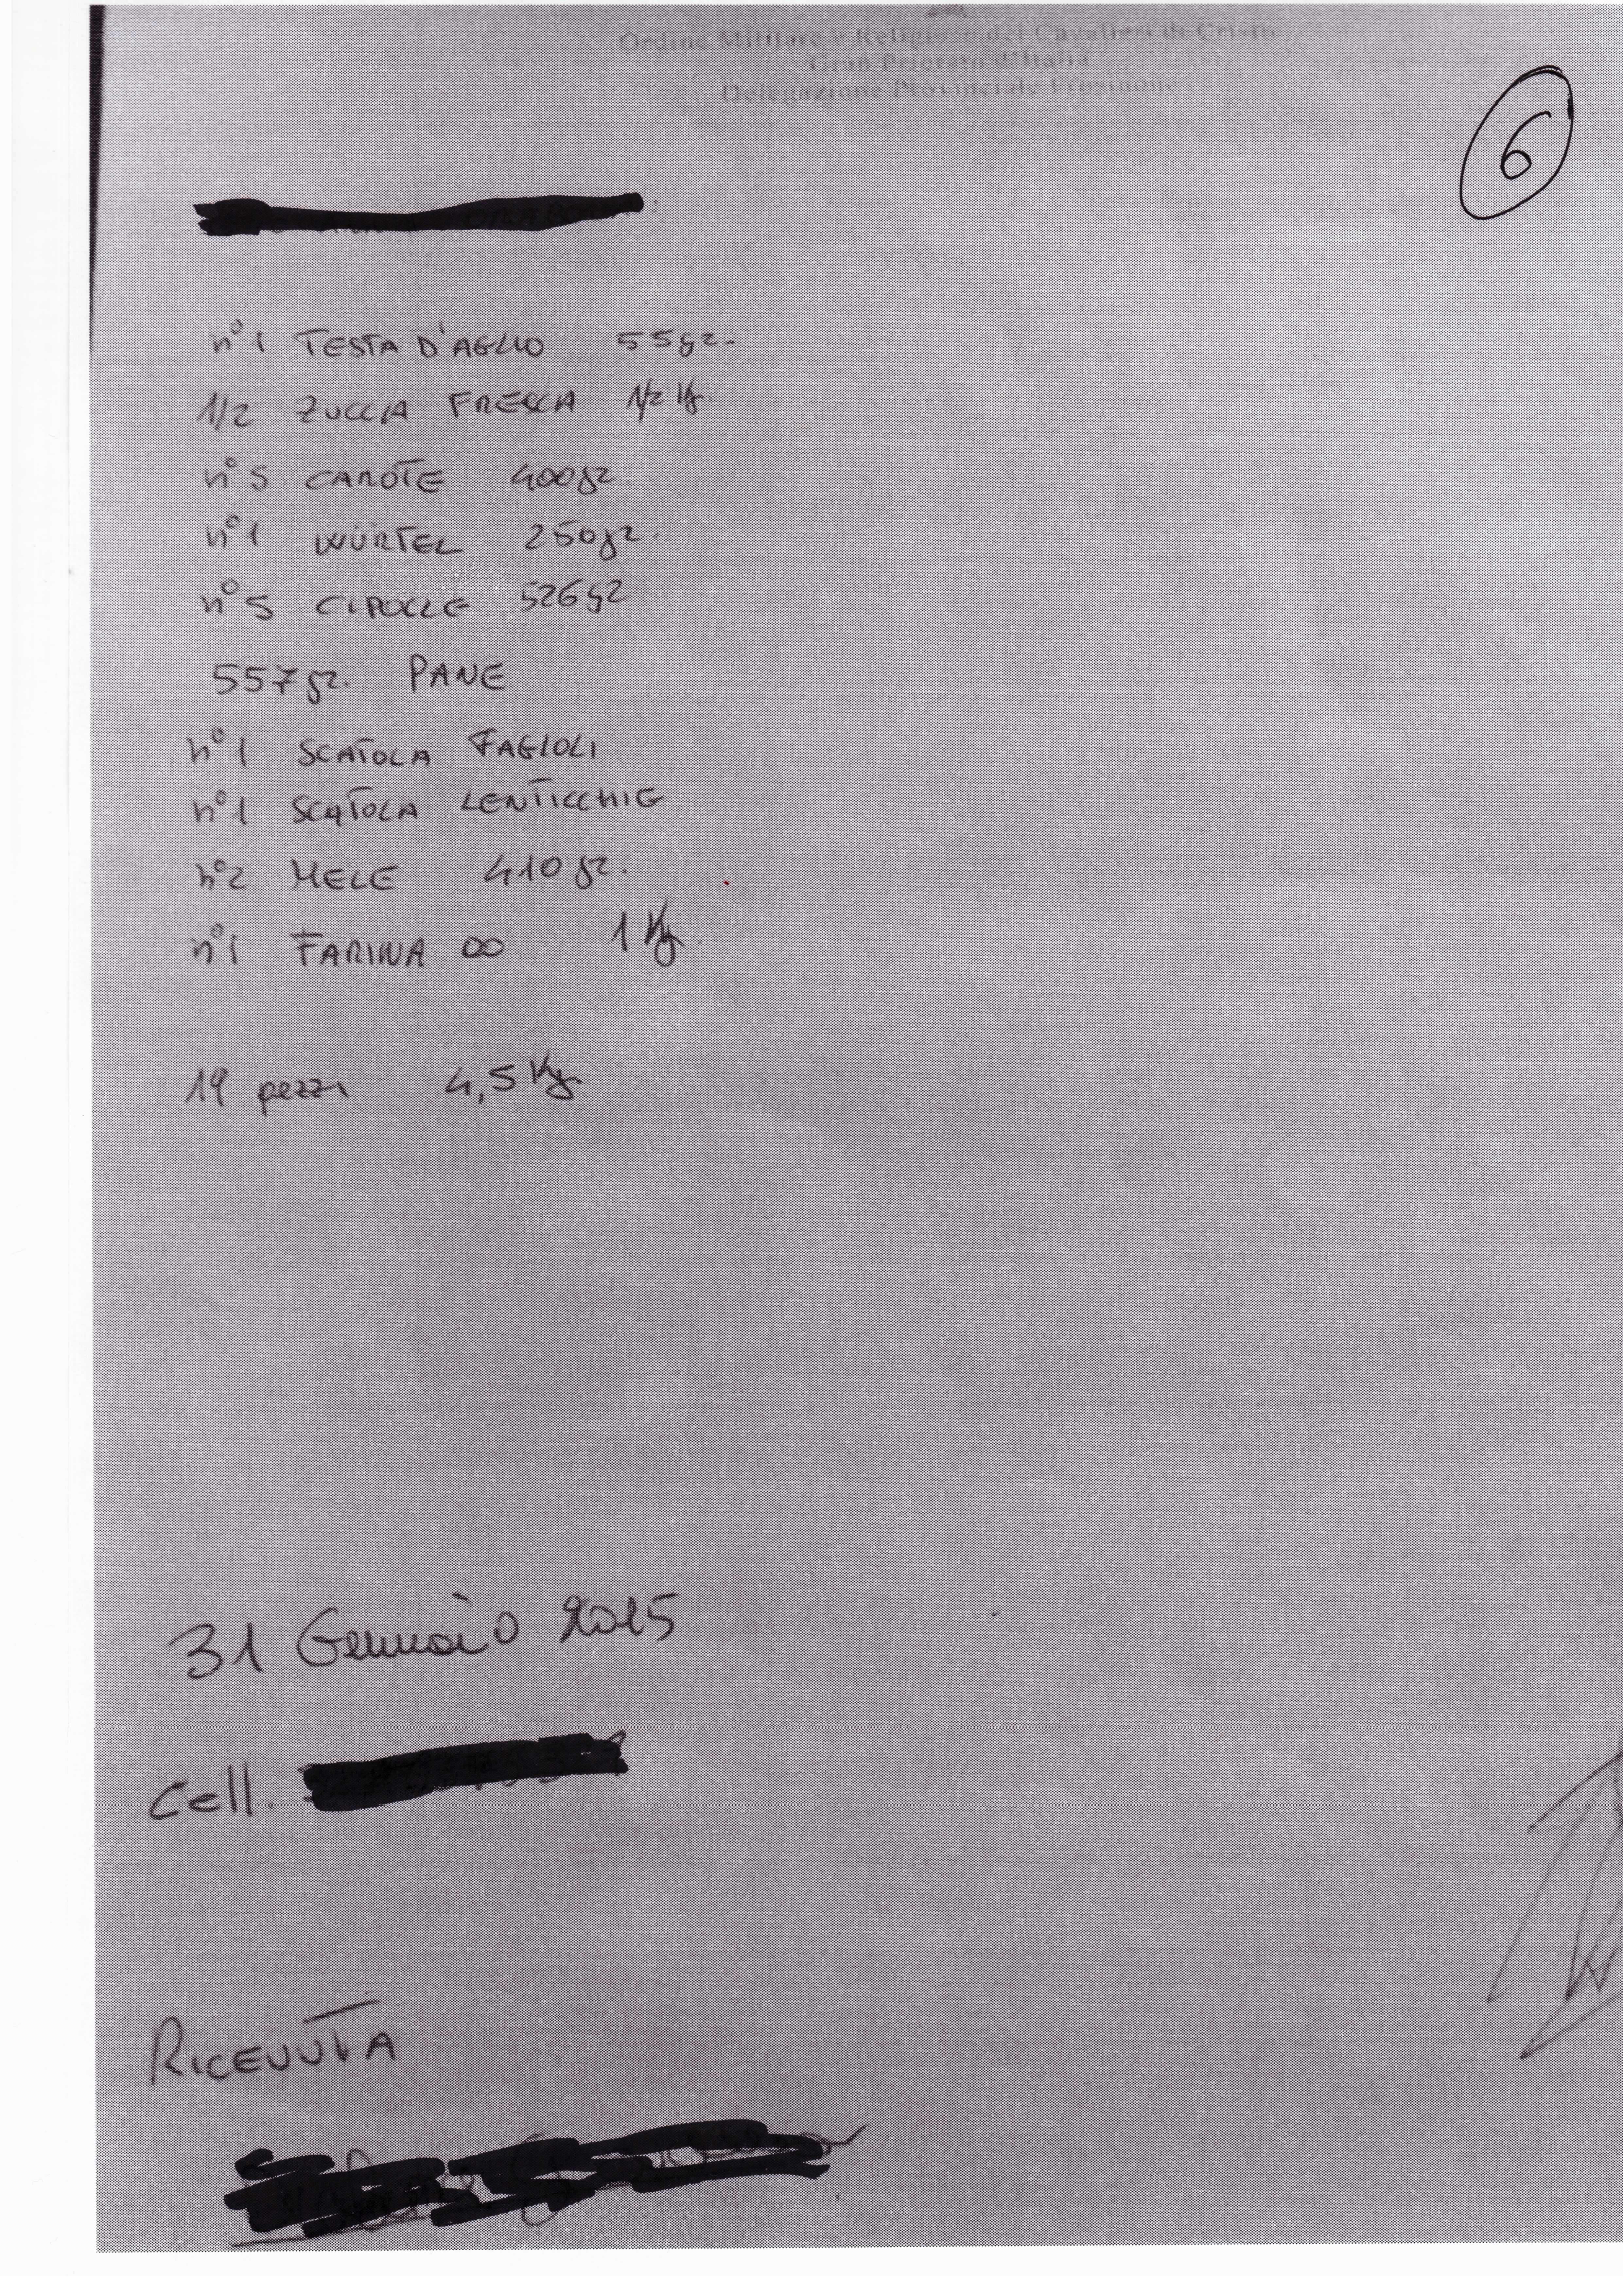 Ordine Militare e Religioso dei Cavalieri di Cristo
Gran Priorato d'Italia
Delegazione Provinciale Frosinone
6
n° 1 TESTA D'AGLIO 55gr.
1/2 ZUCCA FRESCA 1/2 Kg
n° 5 CAROTE 400gr.
n° 1 WÜRTEL 250gr.
n° 5 CIPOLLE 526gr
557gr. PANE
n° 1 SCATOLA FAGIOLI
n° 1 SCATOLA LENTICCHIE
n° 2 MELE 410 gr.
n° 1 FARINA 00 1 Kg.
19 pezzi 4,5 Kg
31 Gennaio 2015
Cell.
RICEVUTA